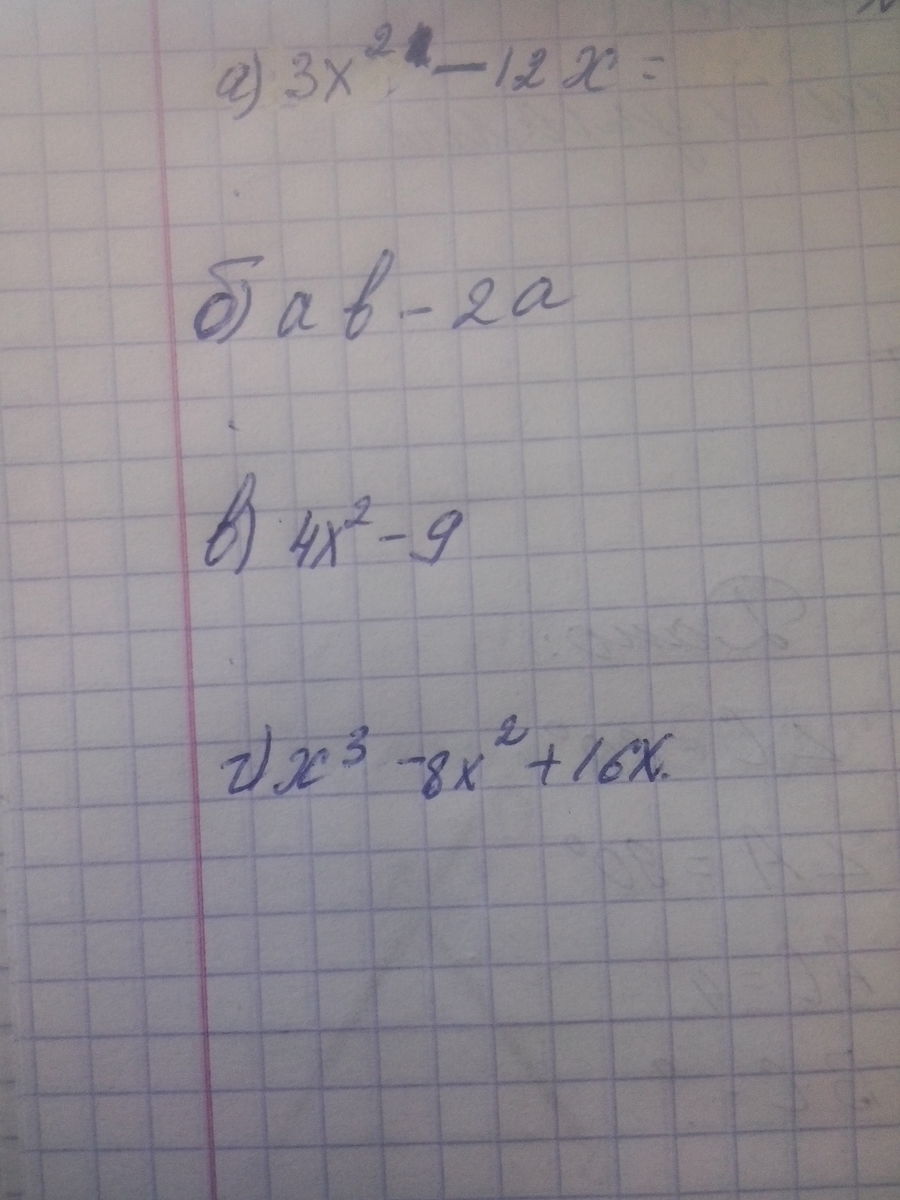 а) 3x² - 12x =
б) ab - 2a
в) 4x² - 9
г) x³ - 8x² + 16x.